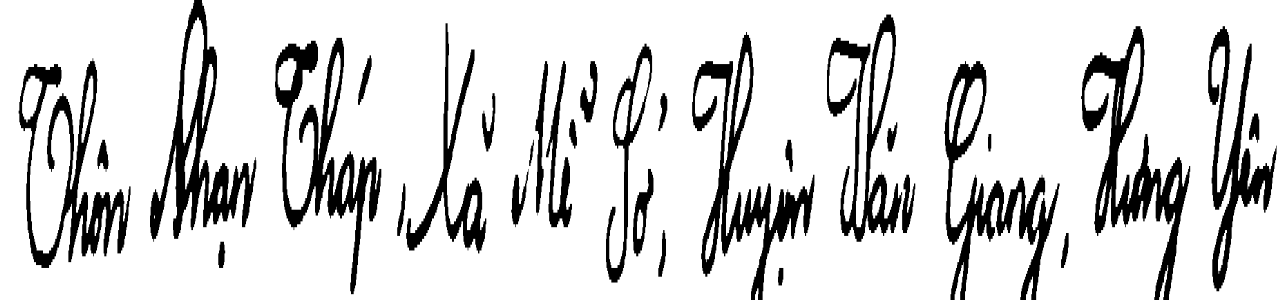 Thôn Nhạn Tháp, Xã Mễ Sở, Huyện Văn Giang, Hưng Yên